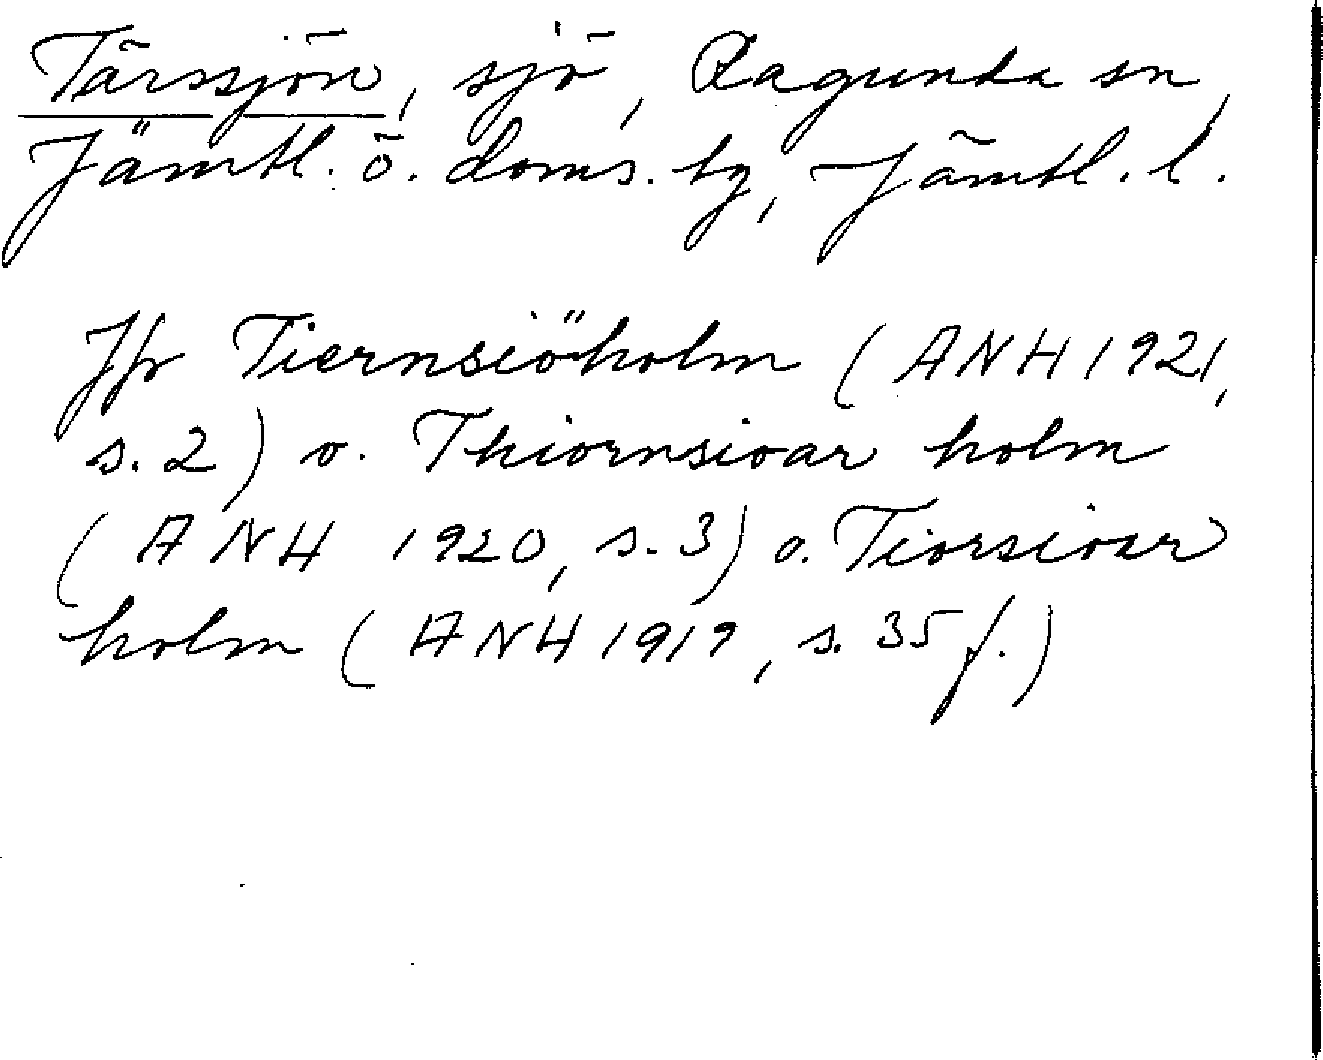 Tärssjön, sjö, Ragunda sn,
Jämtl. ö. doms. tg, Jämtl. l.
Jfr Tiernsiöholm (ANH 1921,
s. 2) o. Thiornsioar holm
(ANH 1920, s. 3) o. Tiorsioar
holm (ANH 1919, s. 35 f.)